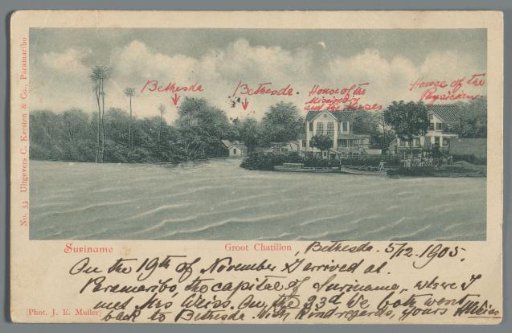 Bethesda
Bethesda.
House of the
Missionary
and the Nurses
House of the
Physician
No. 33 Uitgevers C. Kersten & Co., Paramaribo
Suriname
Groot Chatillon
Bethesda. 5/12. 1905.
On the 19th of November I arrived at
Paramaribo, the capital of Suriname, where I
met Mrs Weiss. On the 23d we both went
back to Bethesda. With kind regards, yours
Phot. J. E. Muller